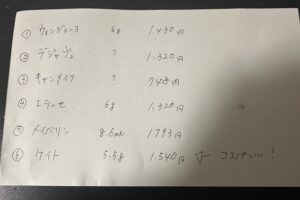 ① ウォンジョンヨ 6g 1.430円
② デジャヴュ ? 1.320円
③ キャンメイク ? 748円
④ エテュセ 6g 1.320円
⑤ メイベリン 8.6ml 1.793円
⑥ ケイト 5.5g 1.540円 コスパいい!